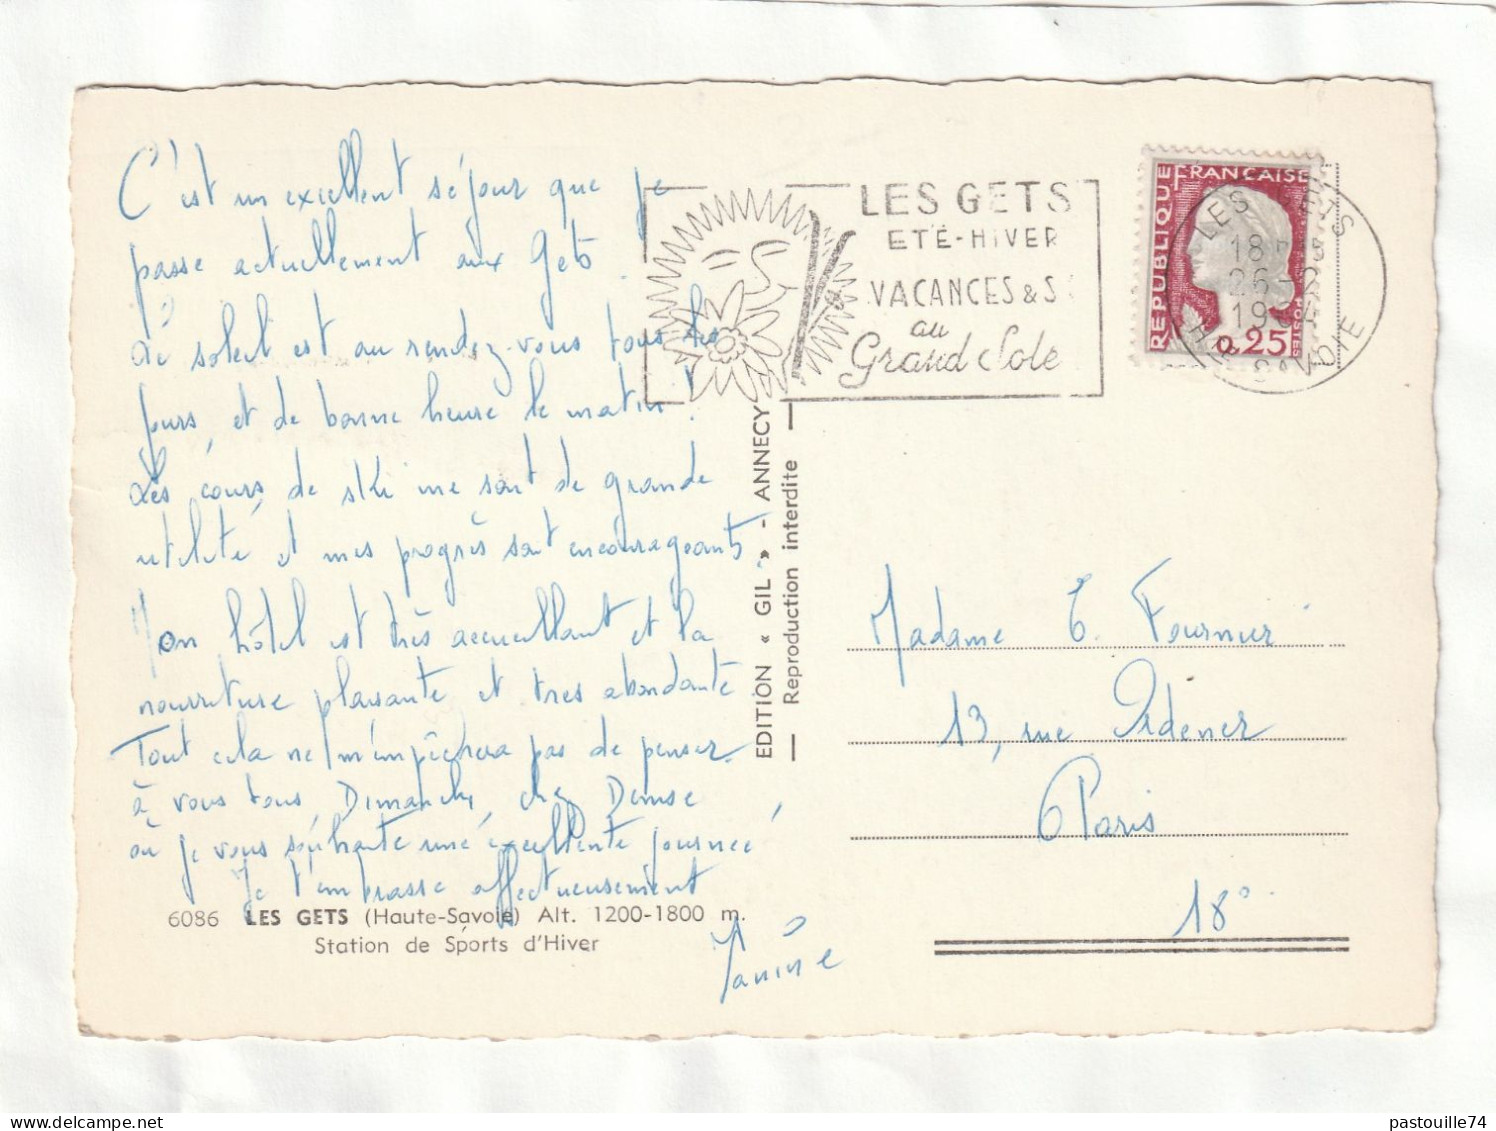 C'est un excellent séjour que je
passe actuellement aux Gets.
Le soleil est au rendez-vous tous les
jours, et de bonne heure le matin !
Les cours de ski me sont de grande
utilité et mes progrès sont encourageants
Mon hôtel est très accueillant et la
nourriture plaisante et très abondante
Tout cela ne m'empêchera pas de penser
à vous tous, Dimanche, chez Denise
où je vous souhaite une excellente journée
Je t'embrasse affectueusement
Janine
6086 LES GETS (Haute-Savoie) Alt. 1200-1800 m.
Station de Sports d'Hiver
EDITION « GIL » - ANNECY
Reproduction interdite
LES GETS
ETÉ-HIVER
VACANCES & S
au
Grand Sole
REPUBLIQUE FRANÇAISE
0,25
POSTES
LES GETS
18H
26-2
1964
HTE SAVOIE
Madame E. Fournier
13, rue Ordener
Paris
18°
pastouille74